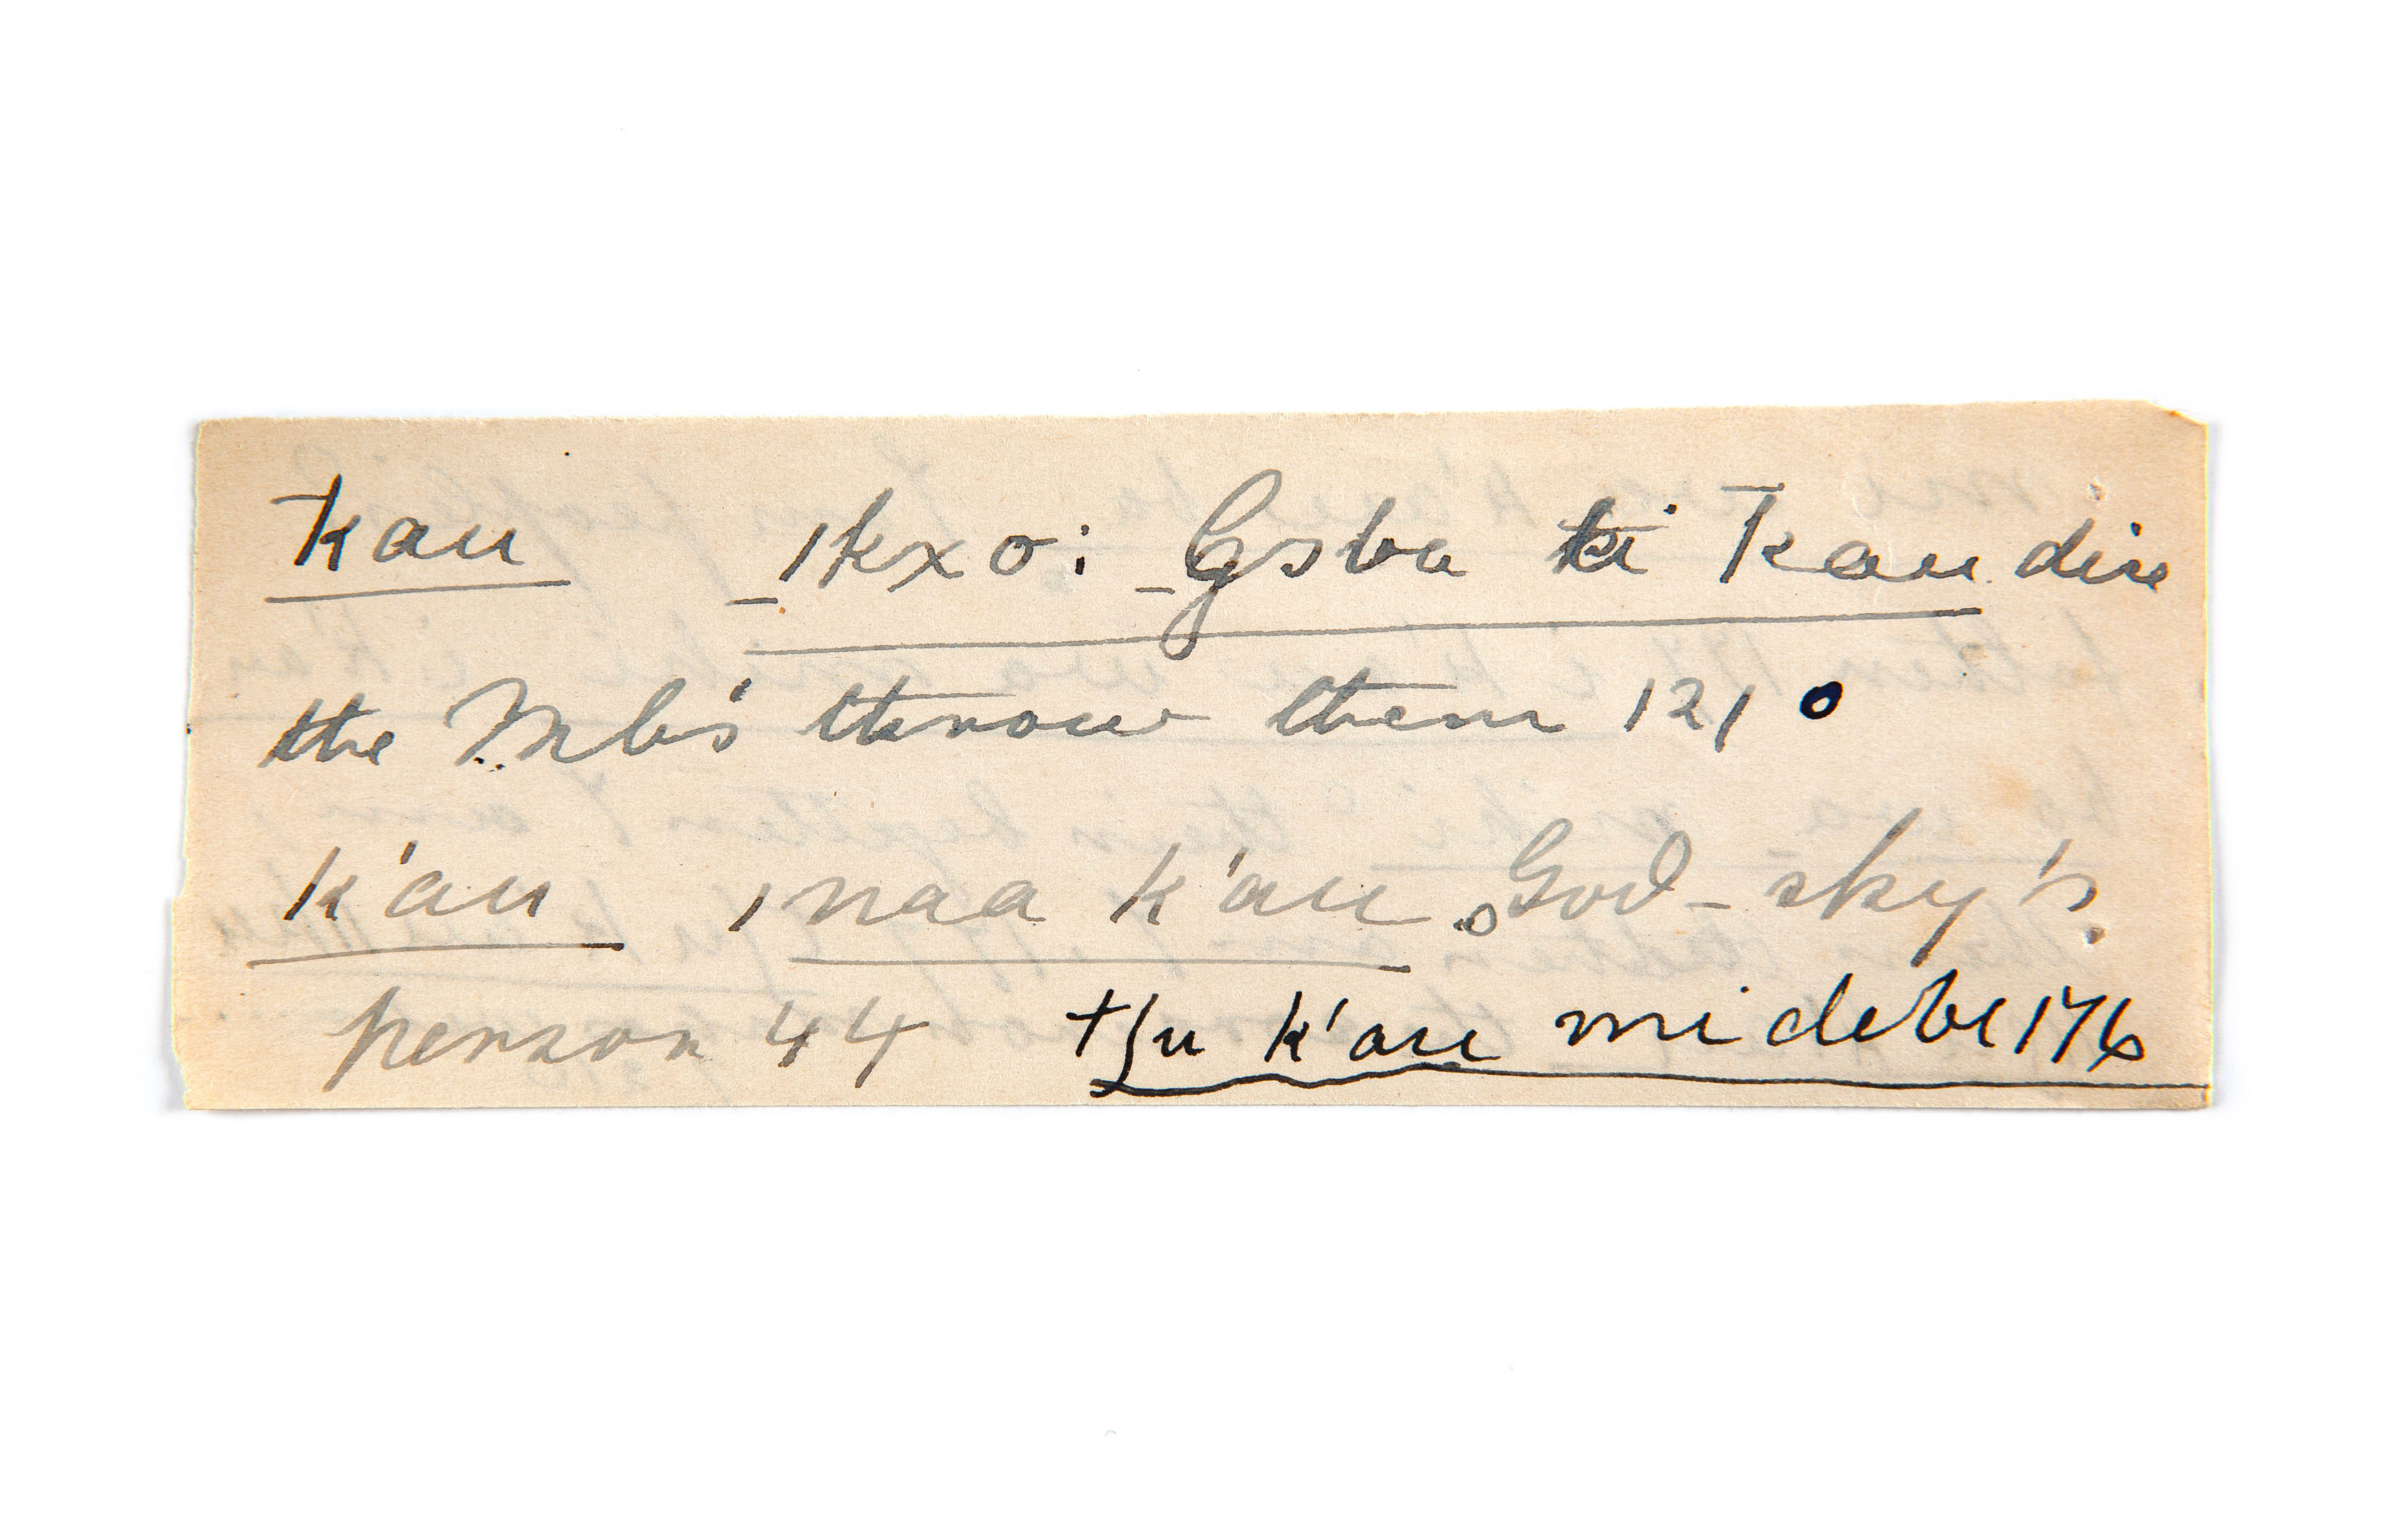 k̄au _ıkxo: _Gsba ti k̄au die
the Mb's throw them 121 o
k'au ınaa k'au God-sky's
person 44 tʃu k'au mi debe 176